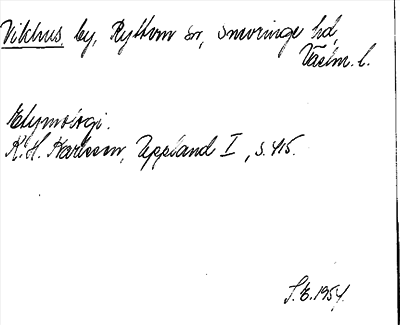 Vikhus, by, Ryttern sn, Snevringe hd,
Västm. l.
Etymologi.
K. H. Karlsson, Uppland I, s. 415.
S.E. 1954.